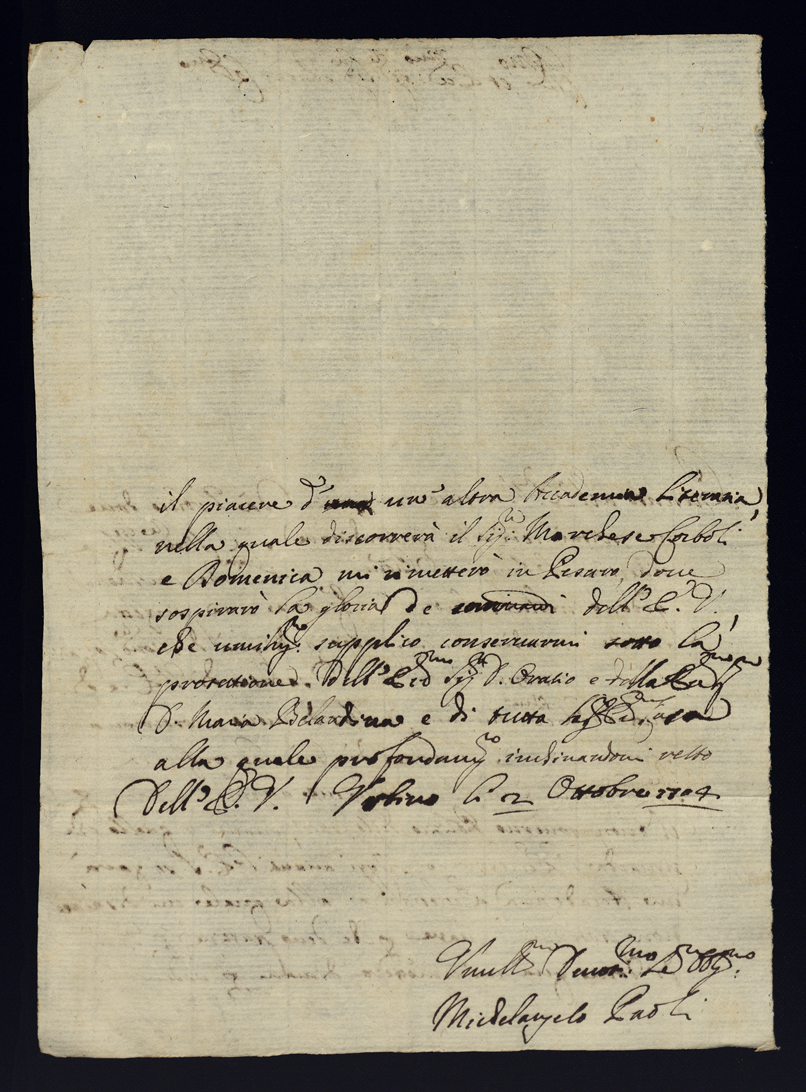 il piacere d' un' altra Accademia Literaria,
nella quale discorrerà il Sig.r Marchese Corboli
e Domenica mi rimetterò in Pesaro, dove
sospirarò la gloria de comandi dell' E. V.,
che umilm.te supplico conservarmi sotto la
protettione dell' Ecc.mo Sig.r D. Oratio e della
D. Maria Belardina e di tutta
alla quale profondam.te inchinandomi resto
Dell' E. V. Urbino li 2 Ottobre 1704
Umill.mo Devot.mo Obbl.mo
Michelangelo Paoli